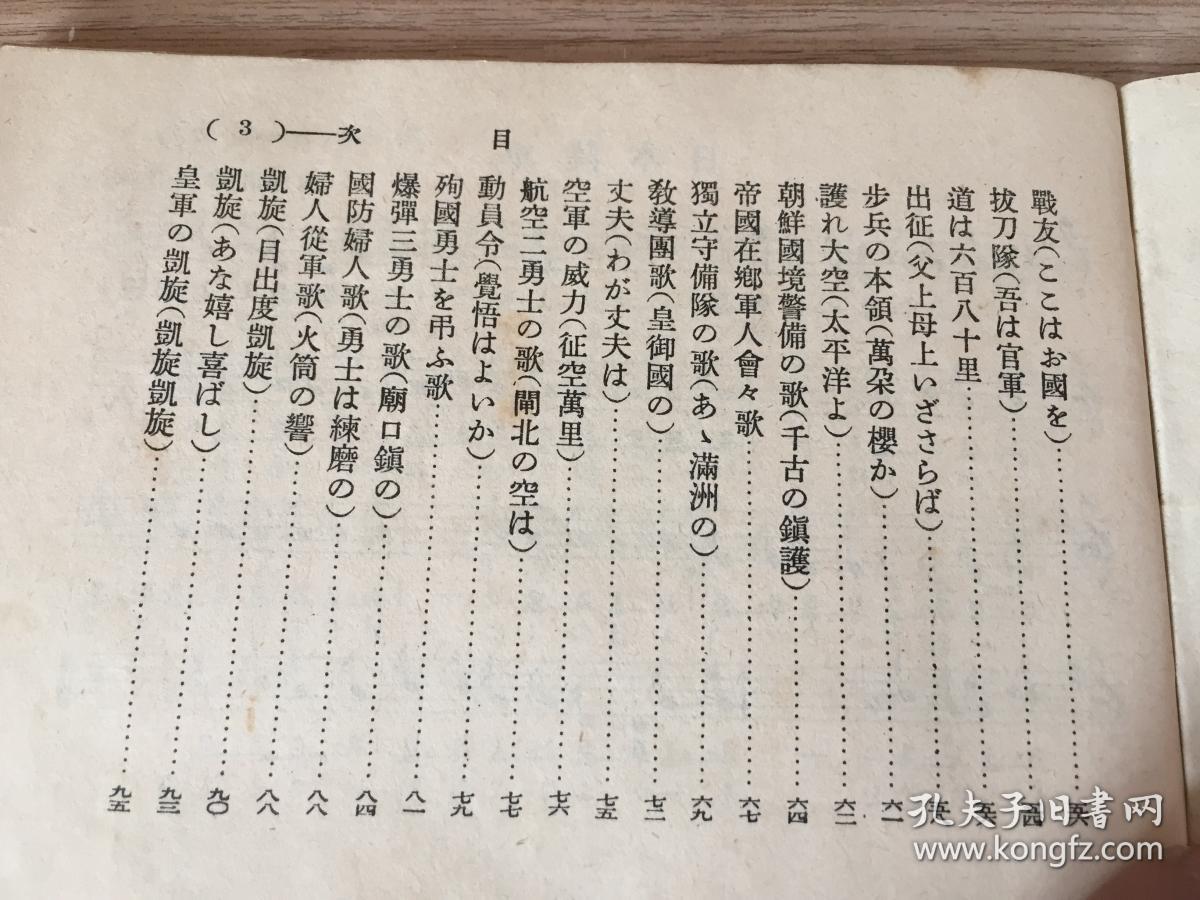 目次——( 3 )
戰友(ここはお國を)
拔刀隊(吾は官軍)
道は六百八十里
出征(父上母上いざさらば)
步兵の本領(萬朶の櫻か)……六一
護れ大空(太平洋よ)……六二
朝鮮國境警備の歌(千古の鎭護)……六四
帝國在鄕軍人會々歌……六七
獨立守備隊の歌(あゝ滿洲の)……六九
敎導團歌(皇御國の)……七三
丈夫(わが丈夫は)……七五
空軍の威力(征空萬里)……七六
航空二勇士の歌(閘北の空は)……七七
動員令(覺悟はよいか)……七九
殉國勇士を弔ふ歌……八一
爆彈三勇士の歌(廟口鎭の)……八四
國防婦人歌(勇士は練磨の)……八八
婦人從軍歌(火筒の響)……八八
凱旋(目出度凱旋)……九〇
凱旋(あな嬉し喜ばし)……九三
皇軍の凱旋(凱旋凱旋)……九五
孔夫子旧书网
www.kongfz.com